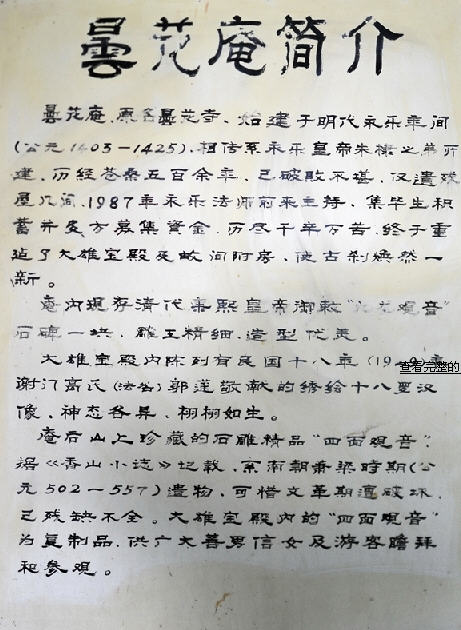 曇花庵简介
曇花庵、原名曇花寺、始建于明代永乐年间
(公元1403—1425),相传系永乐皇帝朱棣之弟所
建,历经苍桑五百余年,已破败不堪,仅遗残
屋几间,1987年永乐法师前来主持,集毕生积
蓄并多方募集资金,历尽千辛万苦,终于重
造了大雄宝殿及
间附房,使古刹焕然一
新。
庵内现存清代康熙皇帝御敕"
观音"
石碑一块,雕工精细,造型代表。
大雄宝殿内陈列有民国十八年(19
9)
谢门高氏(法名)郭莲敬献的绣绘十八罗汉
像,神态各异、栩栩如生。
庵后山上珍藏的石雕精品"四面观音",
据《香山小志》记载,系南朝萧梁时期(公
元502—557)遗物,可惜文革期遭破坏,
已残缺不全。大雄宝殿内的"四面观音"
为复制品,供广大善男信女及游客瞻拜
和参观。
查看完整的